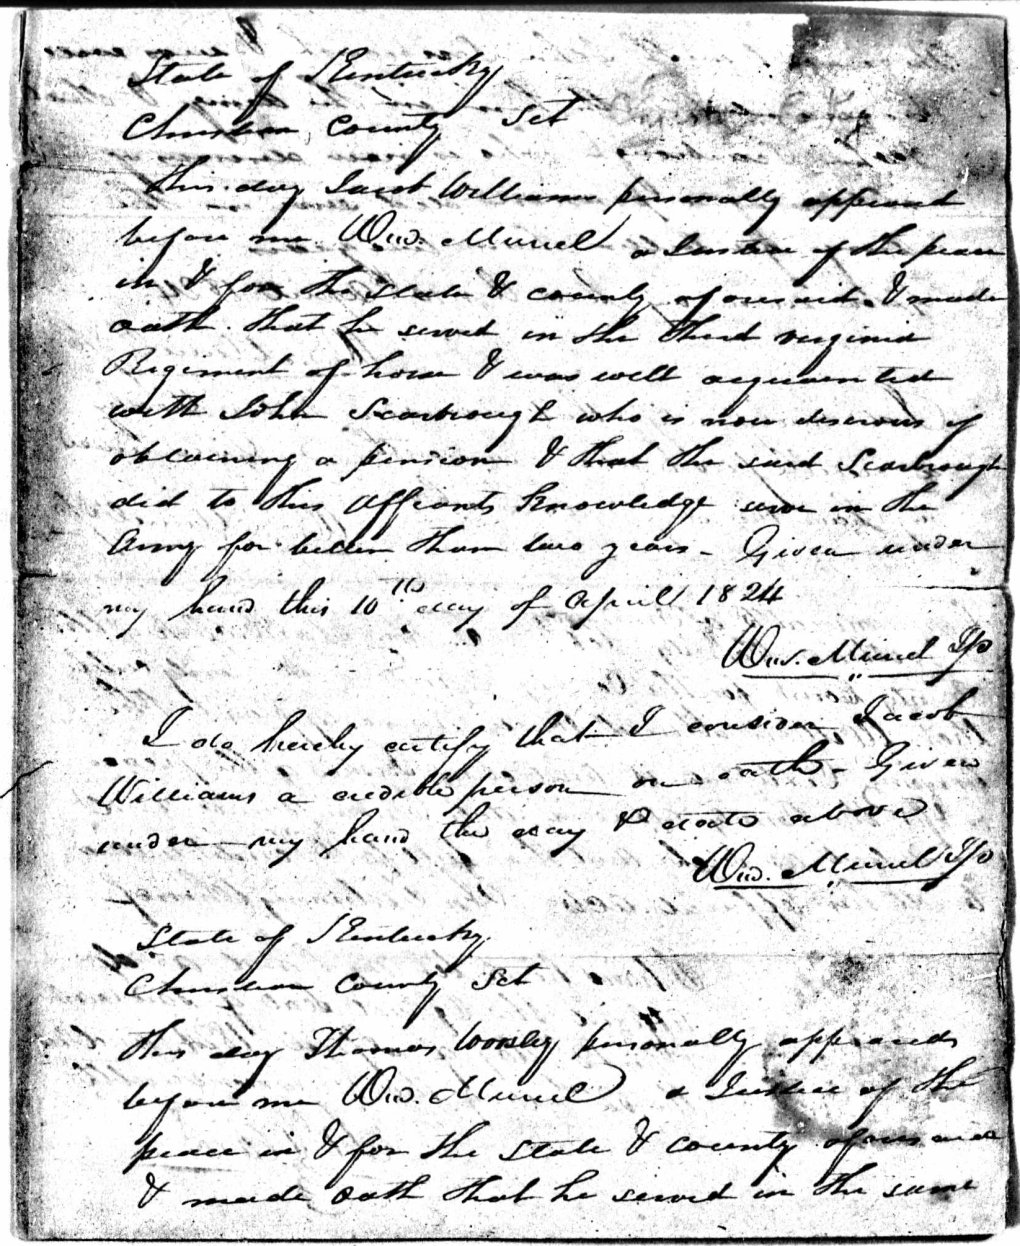 State of Kentucky
Christian County Sct
This day Jacob Williams personally appeard
before me Wm. Murrel a Justice of the peace
in & for the State & county aforesaid & made
oath that he served in the third virginia
Regiment of horse & was well acquainted
with John Scarbrough who is now desirous of
obtaining a pension & that the said Scarbrough
did to this affiants knowledge serve in the
Army for better than two years - Given under
my hand this 10th day of April 1824
Wm. Murrel Jp
I do hereby certify that I consider Jacob
Williams a credible person on oath - Given
under my hand the day & date above
Wm. Murrel Jp
State of Kentucky
Christian County Sct
This day Thomas Worsley personally appeared
before me Wm. Murrel a Justice of the
peace in & for the State & county aforesaid
& made oath that he served in the same